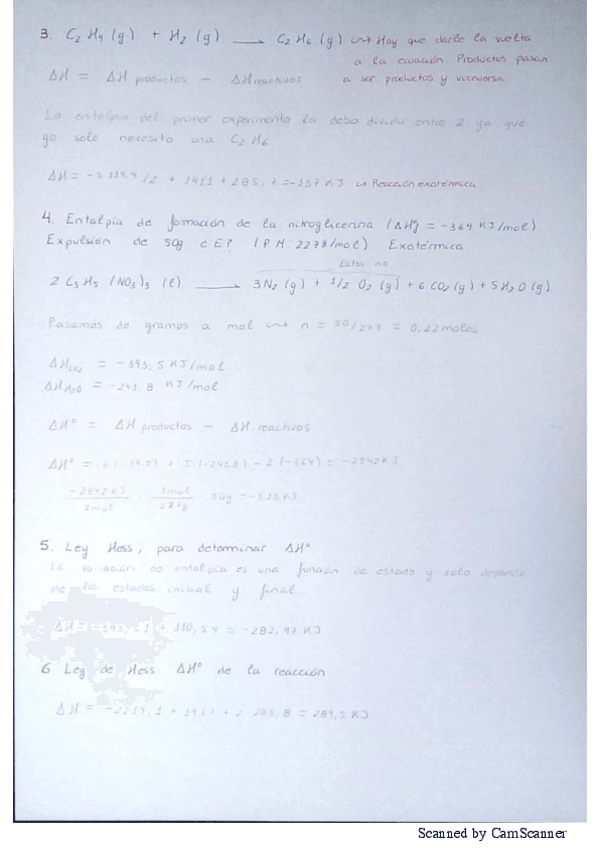 3. C2 H4 (g) + H2 (g) → C2 H6 (g) ↝ Hay que darle la vuelta
a la ecuación. Productos pasan
ΔH = ΔH productos − ΔH reactivos
a ser productos y viceversa
La entalpía del primer experimento la debo dividir entre 2 ya que
yo solo necesito una C2 H6
ΔH = -3119,4/2 + 1411 + 285,7 = -137 KJ ↝ Reacción exotérmica
4. Entalpía de formación de la nitroglicerina (ΔHº = -364 KJ/mol)
Expulsión de 50g (PM: 227g/mol) Exotérmica
Estos no
2 C3 H5 (NO3)3 (l) → 3N2 (g) + 1/2 O2 (g) + 6 CO2 (g) + 5H2O (g)
Pasamos de gramos a mol ↝ n = 50/227 = 0,22 moles
ΔH CO2 = -393,5 KJ/mol
ΔH H2O = -241,8 KJ/mol
ΔHº = ΔH productos − ΔH reactivos
ΔHº = 5 (-241,8) - 2 (-364) = -2842 KJ
-2842 KJ / 2mol · 1mol / 227g · 50g = -313 KJ
5. Ley Hess, para determinar ΔHº
La variación de entalpía es una función de estado y solo depende
de los estados inicial y final
ΔH = + 110,54 = -282,97 KJ
6 Ley de Hess ΔHº de la reacción
ΔH = 285,8 = 289,5 KJ
Scanned by CamScanner